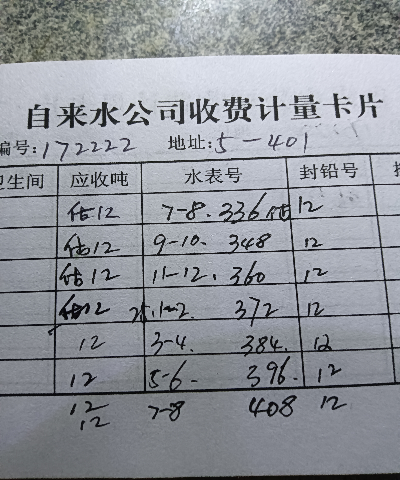 自来水公司收费计量卡片
编号:172222 地址:5-401
卫生间 应收吨 水表号 封铅号
估12 7-8. 336估 12
估12 9-10. 348 12
估12 11-12. 360 12
估12 25.1-2. 372 12
12 3-4. 384. 12
12 5-6. 396. 12
12 7-8 408 12
12